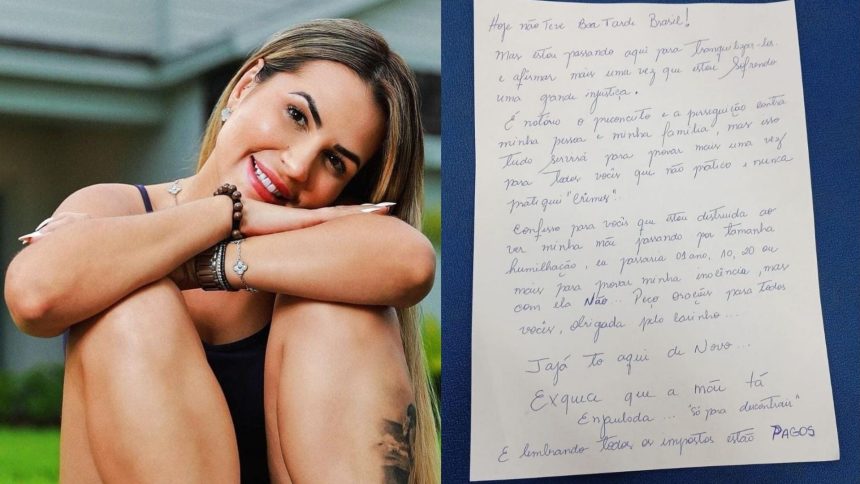 Hoje não teve Boa Tarde Brasil!
Mas estou passando aqui para tranquilizar-los
e afirmar mais uma vez que estou Sofrendo
uma grande injustiça.
É notório o preconceito e a perseguição contra
minha pessoa e minha família, mas isso
tudo servirá para provar mais uma vez
para todos vocês que não pratico e nunca
pratiquei "Crimes".
Confesso para vocês que estou distruida ao
ver minha mãe passando por tamanha
humilhação, eu passaria 01 ano, 10, 20 ou
mais para provar minha inocência, mas
com ela Não... Peço orações para todos
vocês, obrigada pelo carinho...
Jajá to aqui de Novo...
Exquece que a mãe tá
Enjaulada... "só para descontrair"
E lembrando todos os impostos estão PAGOS